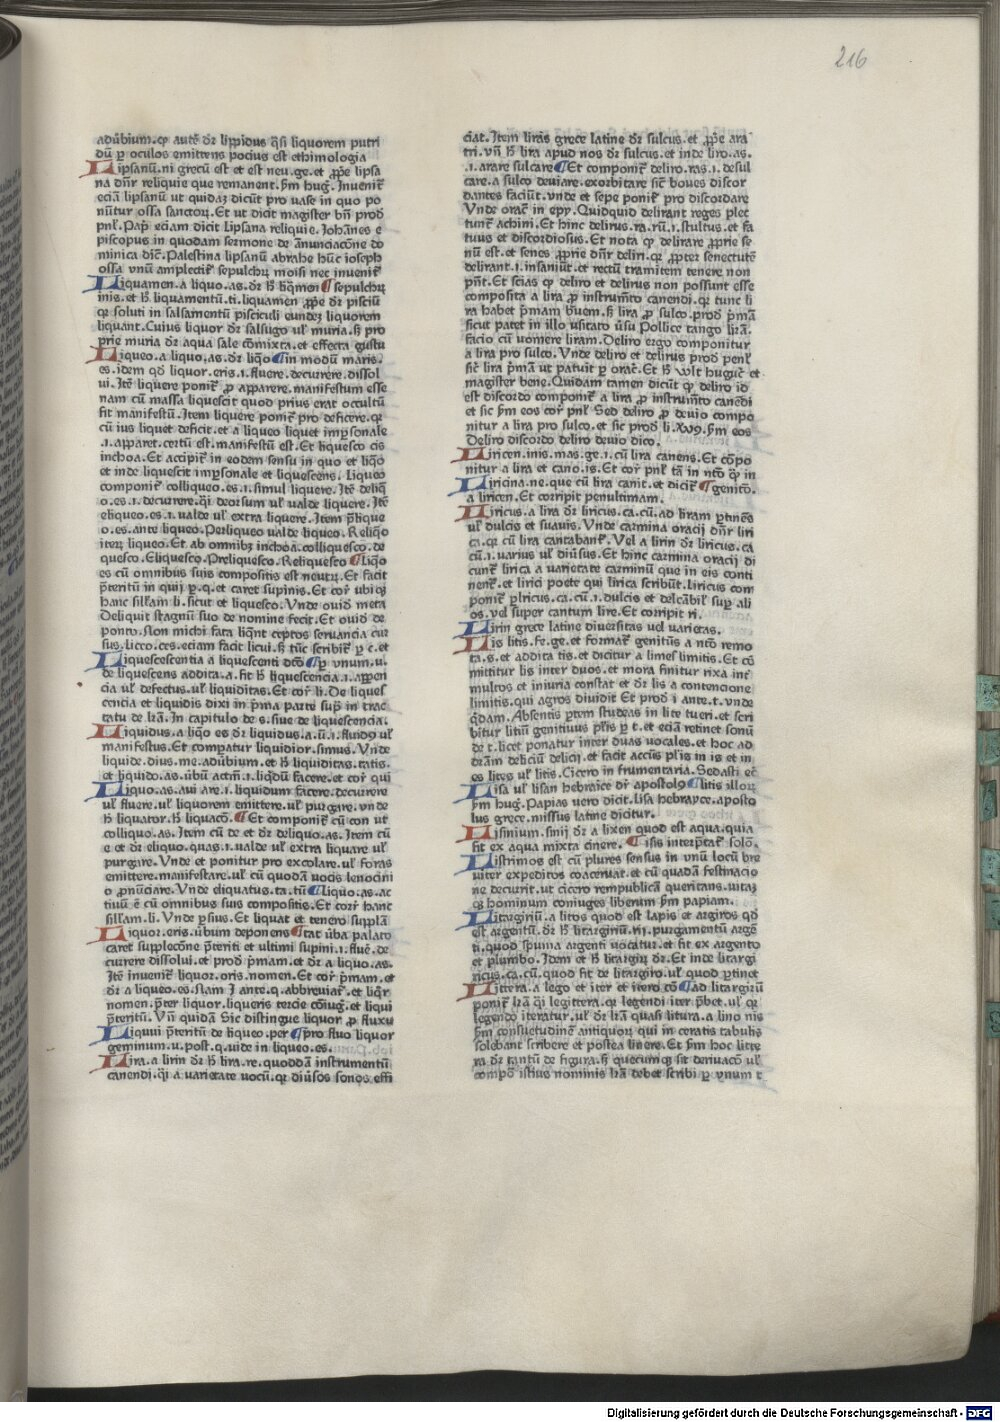 216
adũbium.qͥ autẽ dꝛ lippidus q̃si liquorem putri
dũ p oculos emittens pocius est ethimologia
Lipsanũ.ni grecũ est et est neu.ge.et ꝓpe lipsa
na dñr reliquie que remanent.ẜm hug̃. Inuenit̃
eciã lipsanũ ut quidaꝫ dicũt pro uase in quo po
nũtur ossa sanctoꝝ. Et ut dicit magister bñ prod̃
pnl̃. Pap̃ eciam dicit Lipsana reliquie. Iohãnes e
piscopus in quodam sermone de ãnunciacõne do
minica dic̃. Palestina lipsanũ abrahe hũc ioseph
ossa vnũ amplectit̃ sepulchꝝ moisi nec inuenit̃
Liquamen.a liquo.as.dꝛ h̃ liq̃men sepulchꝝ
inis.et h̃ liquamentũ.ti.liquamen ꝓpe dꝛ pisciũ
qꝛ soluti in salsamentũ pisciculi eundeꝫ liquorem
liquant. Cuius liquor dꝛ salsugo ul̃ muria.sꝫ pro
prie muria dꝛ aqua sale cõmixta.et effecta gustu
Liqueo.a liquo.as.dꝛ liq̃o in modũ maris.
es.idem qd̃ liquor.eris.i.fluere.decurere.dissol
ui. Itẽ liquere ponit̃ ꝓ apparere.manifestum esse
nam cũ massa liquescit quod prius erat occultũ
fit manifestũ. Item liquere ponit̃ pro deficere.qꝛ
cũ ius liquet deficit.et a liqueo liquet imp̃sonale
.i.apparet.certũ est.manifestũ est. Et liquesco cis
inchoa. Et accipit̃ in eodem sensu in quo et liq̃o
et inde liquescit imp̃sonale et liquescens. Liqueo
componit̃ colliqueo.es.i.simul liquere. Itẽ deliq̃
o.es.i.decurere.q̃i deorsum ul̃ ualde liquere. Itẽ
eliqueo.es.i.ualde ul̃ extra liquere. Item p̃lique
o.es.ante liqueo. Perliqueo ualde liqueo. Reliq̃o
iteꝝ liqueo. Et ab omnibꝫ inchoa.colliquesco.de
quesco. Eliquesco. Preliquesco. Reliquesco Liq̃o
es cũ omnibus suis compositis est neutꝝ. Et facit
p̃teritũ in quij p.q.et caret supinis. Et cor̃ ubiqꝫ
hanc sill̃am li.sicut et liquesco. Vnde ouid̃ meta
Deliquit stagnũ suo de nomine fecit. Et ouid̃ de
ponto. Non michi fata liq̃nt ceptos seruancia cur
sus. Licco.ces.eciam facit licui.sꝫ tũc scribit̃ p c.et
Liquescescentia a liquescenti dc̃o p vnum.u.
de liquescens addita.a.fit h̃ liquescencia.i.apperi
cia ul̃ defectus.ul̃ liquiditas. Et cor̃ li. De liques
cencia et liquidis dixi in p̃ma parte sup̃ in trac
tatu de lr̃a. In capitulo de s.siue de liquescencia.
Liquidus.a liq̃o es dꝛ liquidus.a.ũ.i.fluidꝰ ul̃
manifestus. Et comp̃atur liquidior.simus. Vnde
liquide.dius.me.adũbium.et h̃ liquiditas.tatis.
et liquido.as.ũbũ actm̃.i.liq̃dũ facere.et cor̃ qui
Liquo.as.aui are.i.liquidum facere.decurere
ul̃ fluere.ul̃ liquorem emittere.ul̃ purgare.vnde
h̃ liquator. h̃ liquacõ. Et componit̃ cũ con ut
colliquo.as. Item cũ de et dꝛ deliquo.as. Item cũ
e et dꝛ eliquo.quas.i.ualde ul̃ extra liquare ul̃
purgare. Vnde et ponitur pro excolare.ul̃ foras
emittere.manifestare.ul̃ cũ quodã vocis lenocini
o ꝓnũciare. Vnde eliquatus.ta.tũ liquo.as.ac
tiuũ ẽ cũ omnibus suis compositis. Et corr̃ hanc
sill̃am.li. Vnde ꝑsius. Et liquat et tenero supplã
Liquor.eris.ũbum deponens tat ũba palato
caret supplecõne p̃teriti et ultimi supini.i.fluẽ.de
currere dissolui.et prod̃ p̃mam.et dꝛ a liquo.as.
Itẽ inuenit̃ liquor.oris.nomen. Et cor̃ p̃mam.et
dꝛ a liqueo.es. Nam I ante.q.abbreuiat̃.et liq̃r
nomen.p̃ter liquor.liqueris tercie cõiug̃.et liqui
p̃teritũ. Vñ quidã Sic distingue liquor ꝓ fluxu
Liquui p̃teritũ de liqueo.per pro fluo liquor
geminum.u.post.q.uide in liqueo.es.
Lira.a lirin dꝛ h̃ lira.re.quoddã instrumentũ
canendi.q̃i a varietate vocũ.qꝛ diũsos sonos effi
ciat. Item liras grece latine dꝛ sulcus.et ꝓpe ara
tri.vñ h̃ lira apud nos dꝛ sulcus.et inde liro.as.
.i.arare sulcare Et componit̃ deliro.ras.i.desul
care.a sulco deuiare.exorbitare sic̃ boues discor
dantes faciũt.vnde et sepe ponit̃ pro discordare
Vnde orac̃ in epy. Quidquid delirant reges plec
tunt̃ achini. Et hinc delirus.ra.rũ.i.stultus.et fa
tuus et discordiosus. Et nota qͥ delirare ꝓprie se
nũ est.et senes ꝓprie dñr deliri.qꝛ ꝓpter senectutẽ
delirant.i.insaniũt.et rectũ tramitem tenere non
pñt. Et scias qͥ deliro et delirus non possunt esse
composita a lira ꝓ instrum̃to canendi.qꝛ tunc li
ra habet p̃mam b̃uem.sꝫ lira ꝓ sulco.prod̃ p̃mã
sicut patet in illo usitato ũsu Pollice tango lirã.
facio cũ uomere liram. Deliro ergo componitur
a lira pro sulco. Vnde deliro et delirus prod̃ penl̃
sic̃ lira p̃mã ut patuit p orac̃. Et h̃ wlt huguc̃ et
magister bene. Quidam tamen dicũt qͥ deliro id
est discordo componit̃ a lira ꝓ instrum̃to canẽdi
et sic ẜm eos cor̃ pnl̃ Sed deliro ꝓ deuio compo
nitur a lira pro sulco.et sic prod̃ li. Vn̉ ẜm eos
Deliro discordo deliro deuio dico.
Liricen.inis.mas.ge.i.cũ lira canens. Et cõpo
nitur a lira et cano.is. Et cor̃ pnl̃ tã in nt̃o q̃ in
Liricina.ne.que cũ lira canit.et dicit̃ genit̃o.
a liricen. Et corripit penultimam.
Liricus a lira dꝛ liricus.ca.cũ.ad liram ꝑtinẽs
ul̃ dulcis et suauis. Vnde carmina oracij dñr liri
ca.qꝛ cũ lira cantabant̃. Vel a lirin dꝛ liricus.ca
cũ.i.varius ul̃ diũsus. Et hinc carmina oracij di
cunt̃ lirica a varietate carminũ que in eis conti
nent̃.et lirici poete qui lirica scribũt. Liricus com
ponit̃ plricus.ca.cũ.i.dulcis et delcãbil̃ sup ali
os.vel super cantum lire. Et corripit ri.
Lirin grece latine diuersitas uel varietas.
Lis litis.fe.ge.et format̃ genitũs a nt̃o remo
ta.s.et addita tis.et dicitur a limes limitis. Et cõ
mittitur lis inter duos.et mora finitur rixa int̃
multos et iniuria constat et dꝛ lis a contencione
limitis.qui agros diuidit Et prod̃ i ante.t.vnde
q̃dam. Absentis ꝑtem studeas in lite tueri.et scri
bitur litiũ genitiuus pl̃is p t.et eciã retinet sonũ
de t.licet ponatur inter duas vocales.et hoc ad
dr̃am deliciũ delicij.et facit accũs pl̃is in is et in
es lites ul̃ litis. Cicero in frumentaria. Sedasti ec̃
Lisa ul̃ lisan hebraice dꝛ apostolꝰ litis illoꝝ
ẜm hug̃. Papias uero dicit. lisa hebrayce.aposto
lus grece.missus latine dicitur.
Lisinium.sinij dꝛ a lixen quod est aqua.quia
fit ex aqua mixta cinere. isis interp̃tat̃ solõ.
Listrimos est cũ plures sensus in vnũ locũ bre
uiter expeditos coaceruat.et cũ quadã festinacio
ne decurit.ut cicero rempublicã queritans.uitaꝫ
qꝫ hominum coniuges liberum ẜm papiam.
Litargiriũ.a litos quod est lapis et argiros qd̃
est argentũ.dꝛ h̃ litargiriũ.rij.purgamentũ argẽ
ti.quod spuma argenti vocatur.et fit ex argento
et plumbo. Idem et h̃ litargiꝝ dꝛ. Et inde litargi
ricus.ca.cũ.quod fit de litargiro.ul̃ quod ꝑtinet
Littera.a lego et iter et itero cõ ad litargiriũ
ponit̃ lr̃a q̃i legittera.qꝛ legendi iter p̃bet.ul̃ qꝛ
legendo iteratur.ul̃ dꝛ lr̃a quasi litura.a lino nis
ẜm consuetudinẽ antiquoꝝ qui in ceratis tabulis
solebant scribere et postea linere. Et ẜm hoc litte
ra dꝛ tantũ de figura.sꝫ quecumqꝫ sit deriuacõ ul̃
compõ istius nominis lr̃a debet scribi p vnum t
Digitalisierung gefördert durch die Deutsche Forschungsgemeinschaft - DFG